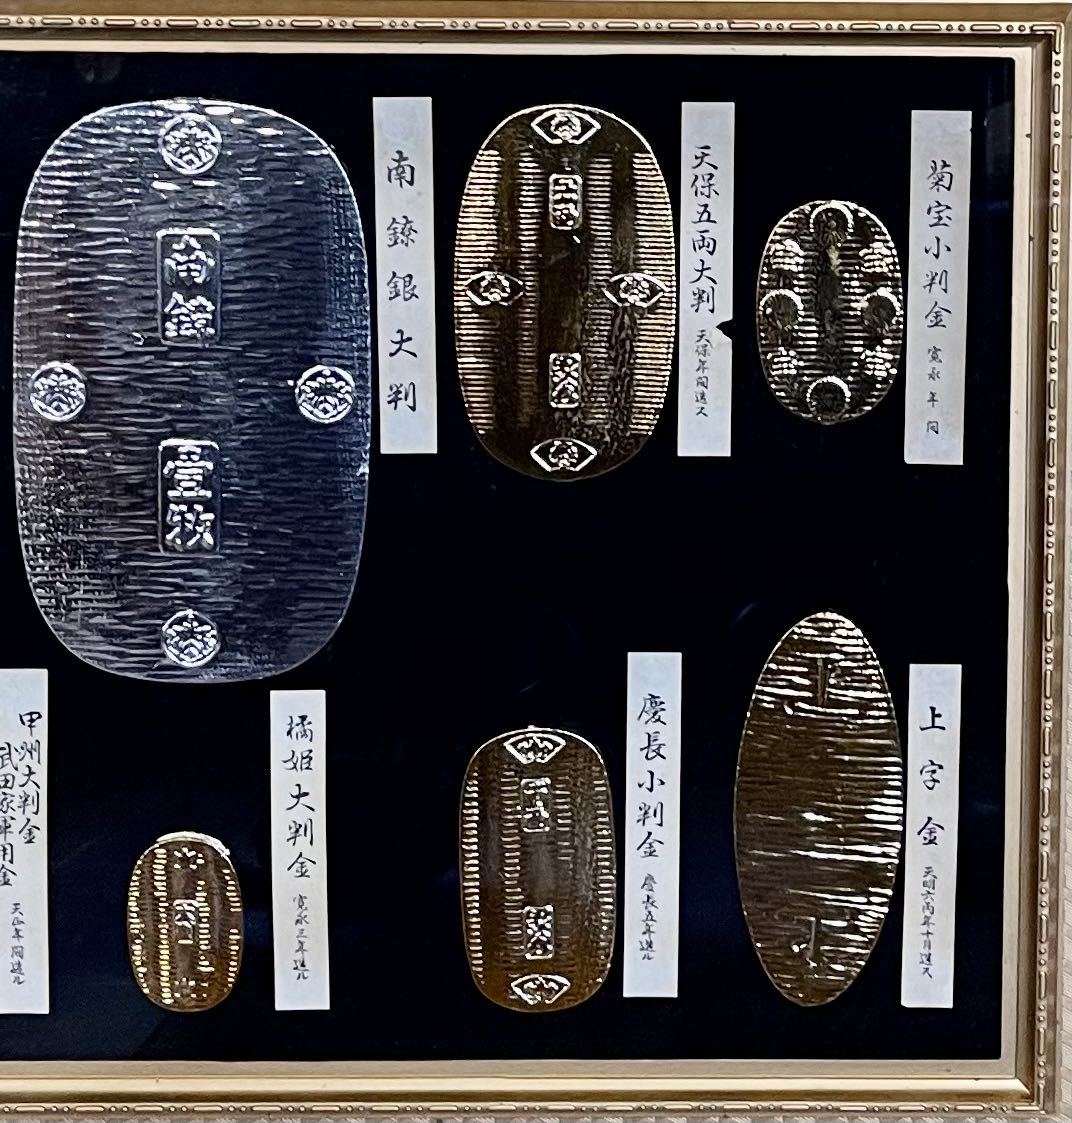 菊宝小判金 寛永年間
天保五両大判 天保年間造ス
南鐐銀大判
南鐐
壹枚
上字金 天明六丙年十月造ス
慶長小判金 慶長五年造ル
橘姫大判金 寛永三年造ル
甲州大判金
武田家軍用金 天正年間造ル